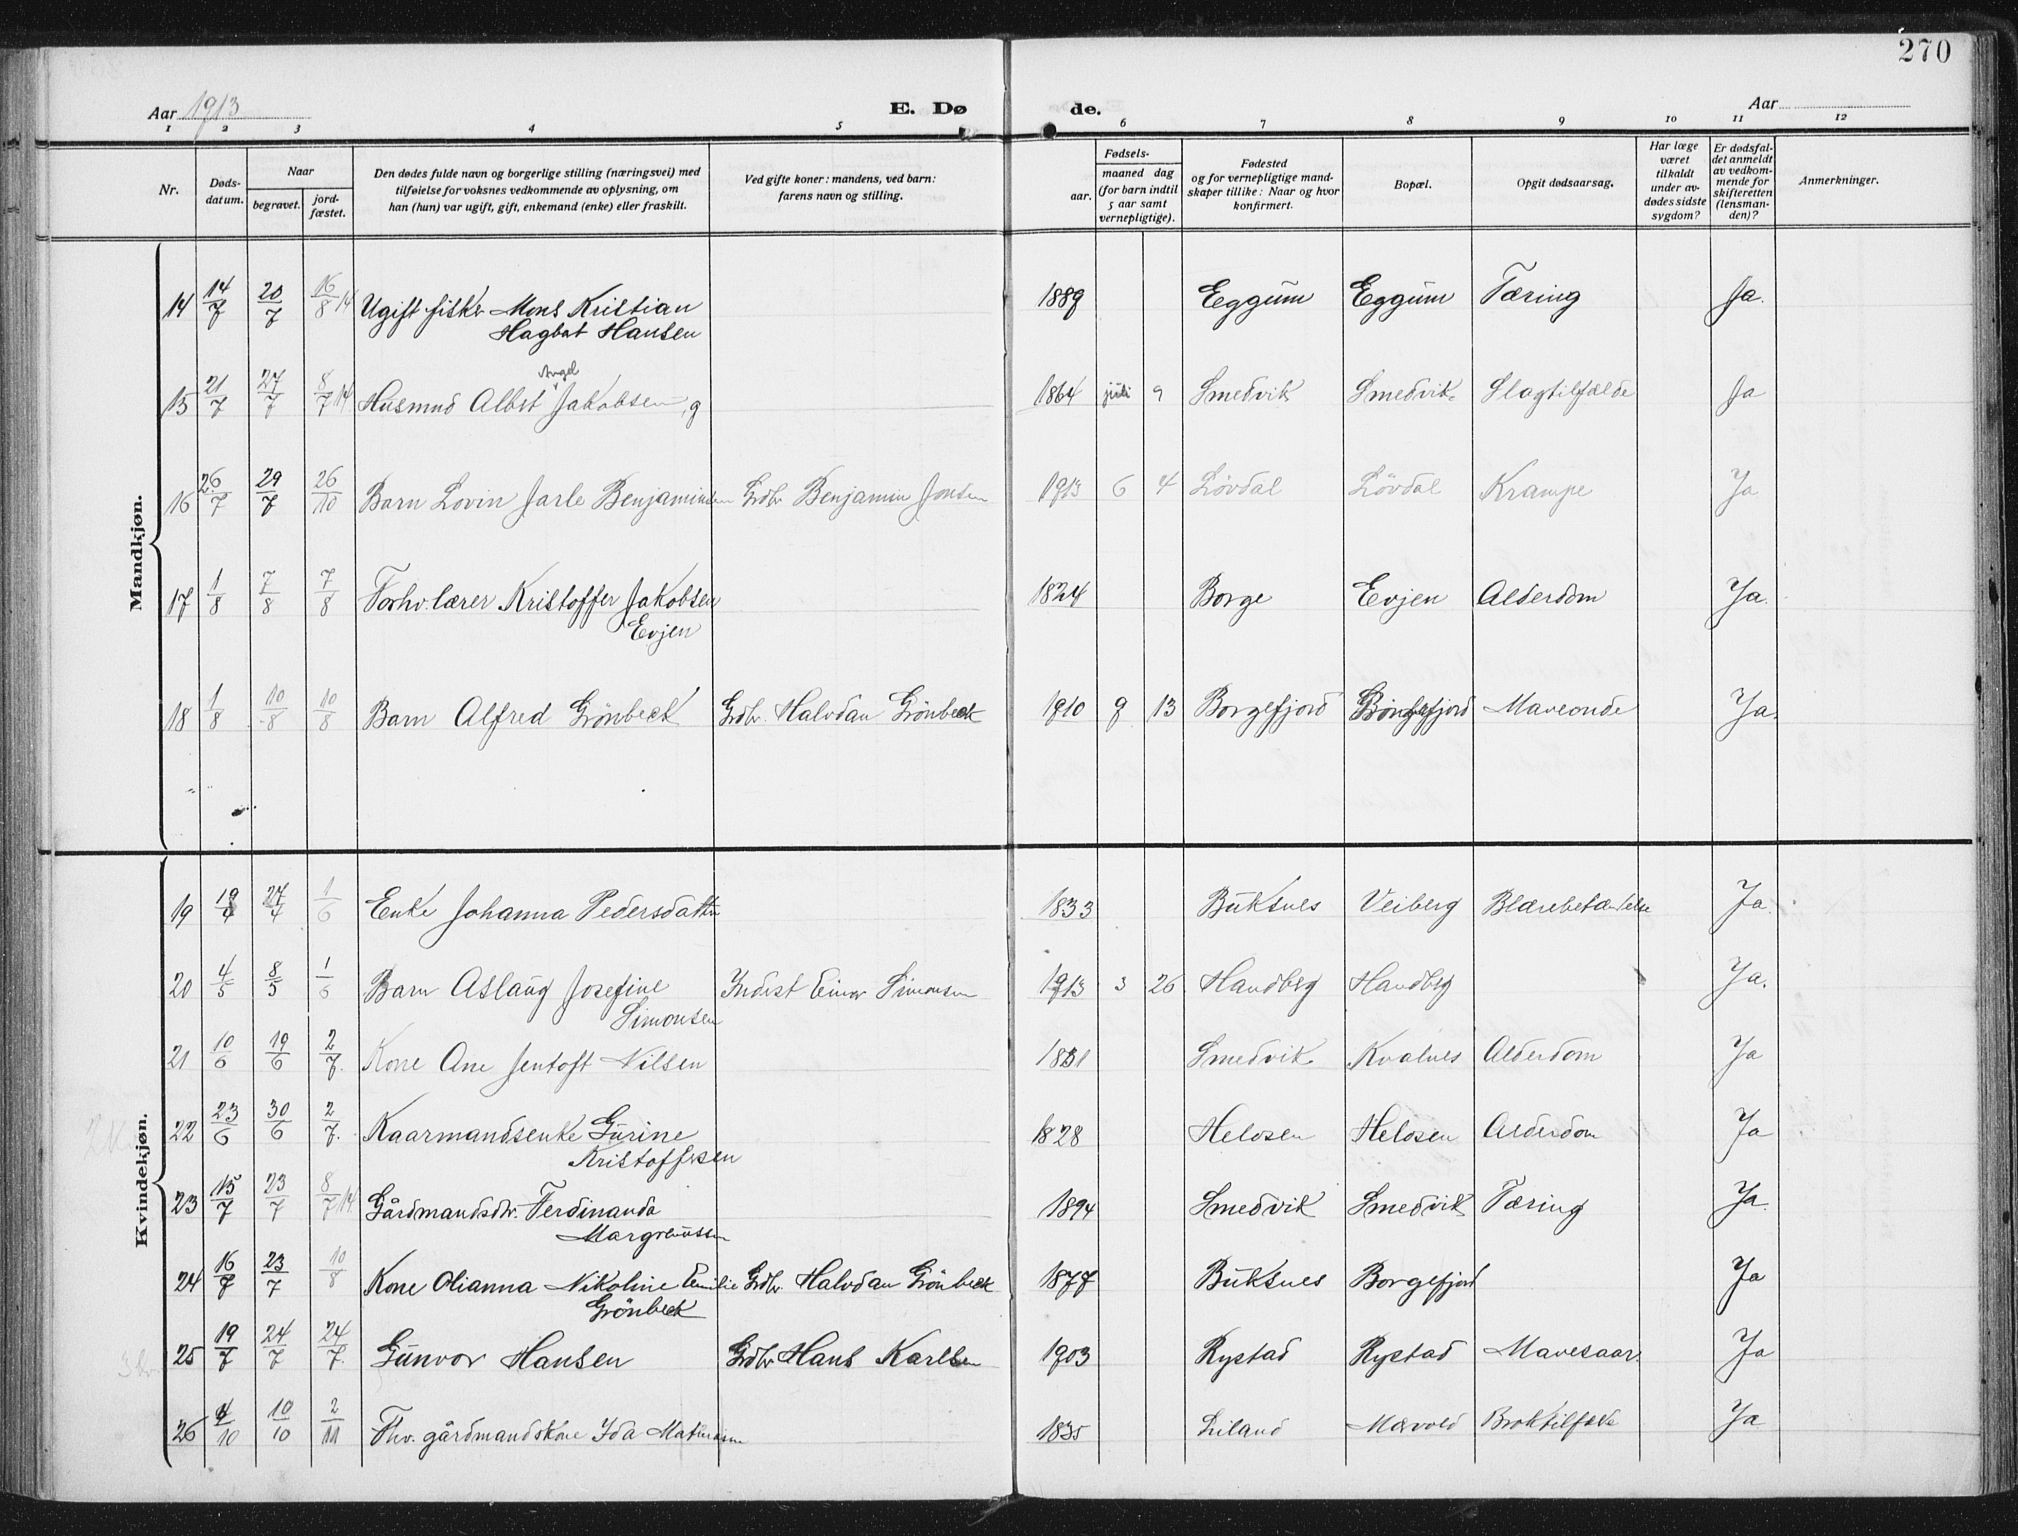 270
Aar 1913
E. Dø
de.
Aar
1 2 3 4 5 6 7 8 9 10 11 12
Nr.
Døds-
datum.
Naar
begravet.
jord-
fæstet.
Den dødes fulde navn og borgerlige stilling (næringsvei) med
tilføielse for voksnes vedkommende av oplysning, om
han (hun) var ugift, gift, enkemand (enke) eller fraskilt.
Ved gifte koner: mandens, ved barn:
farens navn og stilling.
Fødsels-
aar.
maaned dag
(for barn indtil
5 aar samt
vernepligtige).
Fødested
og for vernepligtige mand-
skaper tillike: Naar og hvor
konfirmert.
Bopæl.
Opgit dødsaarsag.
Har læge
været
tilkaldt
under av-
dødes sidste
sygdom?
Er dødsfal-
det anmeldt
av vedkom-
mende for
skifteretten
(lensman-
den)?
Anmerkninger.
Mandkjøn.
14 14/7 20/7 16/8 14 Ugift fisker Mons Kristian 1889 Eggum Eggum Tæring Ja.
Hagbat Hansen
Angel
15 21/7 27/7 8/7 14 Husmnd Albt Jakobsen, g 1864 juli 9 Smedvik Smedvik Slagtilfælde Ja
16 26/7 29/7 26/10 Barn Lovin Jarle Benjaminsen Grdbr Benjamin Jonsen 1913 6 4 Lövdal Lövdal Krampe Ja
17 1/8 7/8 7/8 Forhv. lærer Kristoffer Jakobsen 1824 Borge Evjen Alderdom Ja.
Evjen
18 1/8 10/8 10/8 Barn Alfred Grönbeck Grdbr. Halvdan Grönbeck 1910 9 13 Borgefjord Borgefjord Maveonde Ja.
Kvindekjøn.
19 19/4 27/4 1/6 Enke Johanna Pedersdatter 1833 Buksnes Veiberg Blærebetændelse Ja.
20 4/5 8/5 1/6 Barn Aslaug Josefine Indest Einar Simonsen 1913 3 26 Handberg Handberg Ja.
Simonsen
21 10/6 19/6 2/7. Kone Ane Jentoft Nilsen 1831 Smedvik Kvalnes Alderdom Ja
22 23/6 30/6 2/7. Kaarmandsenke Gurine 1828 Helosen Helosen Alderdom Ja
Kristoffersen
23 15/7 23/7 8/7 14 Gårdmandsdtr. Ferdinanda 1894 Smedvik Smedvik Tæring Ja.
24 16/7 23/7 10/8 Kone Olianna Nikoline Emilie Grdbr. Halvdan Grönbeck 1877 Buksnes Borgefjord Ja
Grönbeck
25 19/7 24/7 24/7. Gunvor Hansen Grdbr Hans Karlsen 1903 Rystad Rystad Mavesaar. Ja
26 4/10 10/10 2/11 Fhv. gårdmandskone Ida 1835 Liland Mærvold Broktilfælde Ja